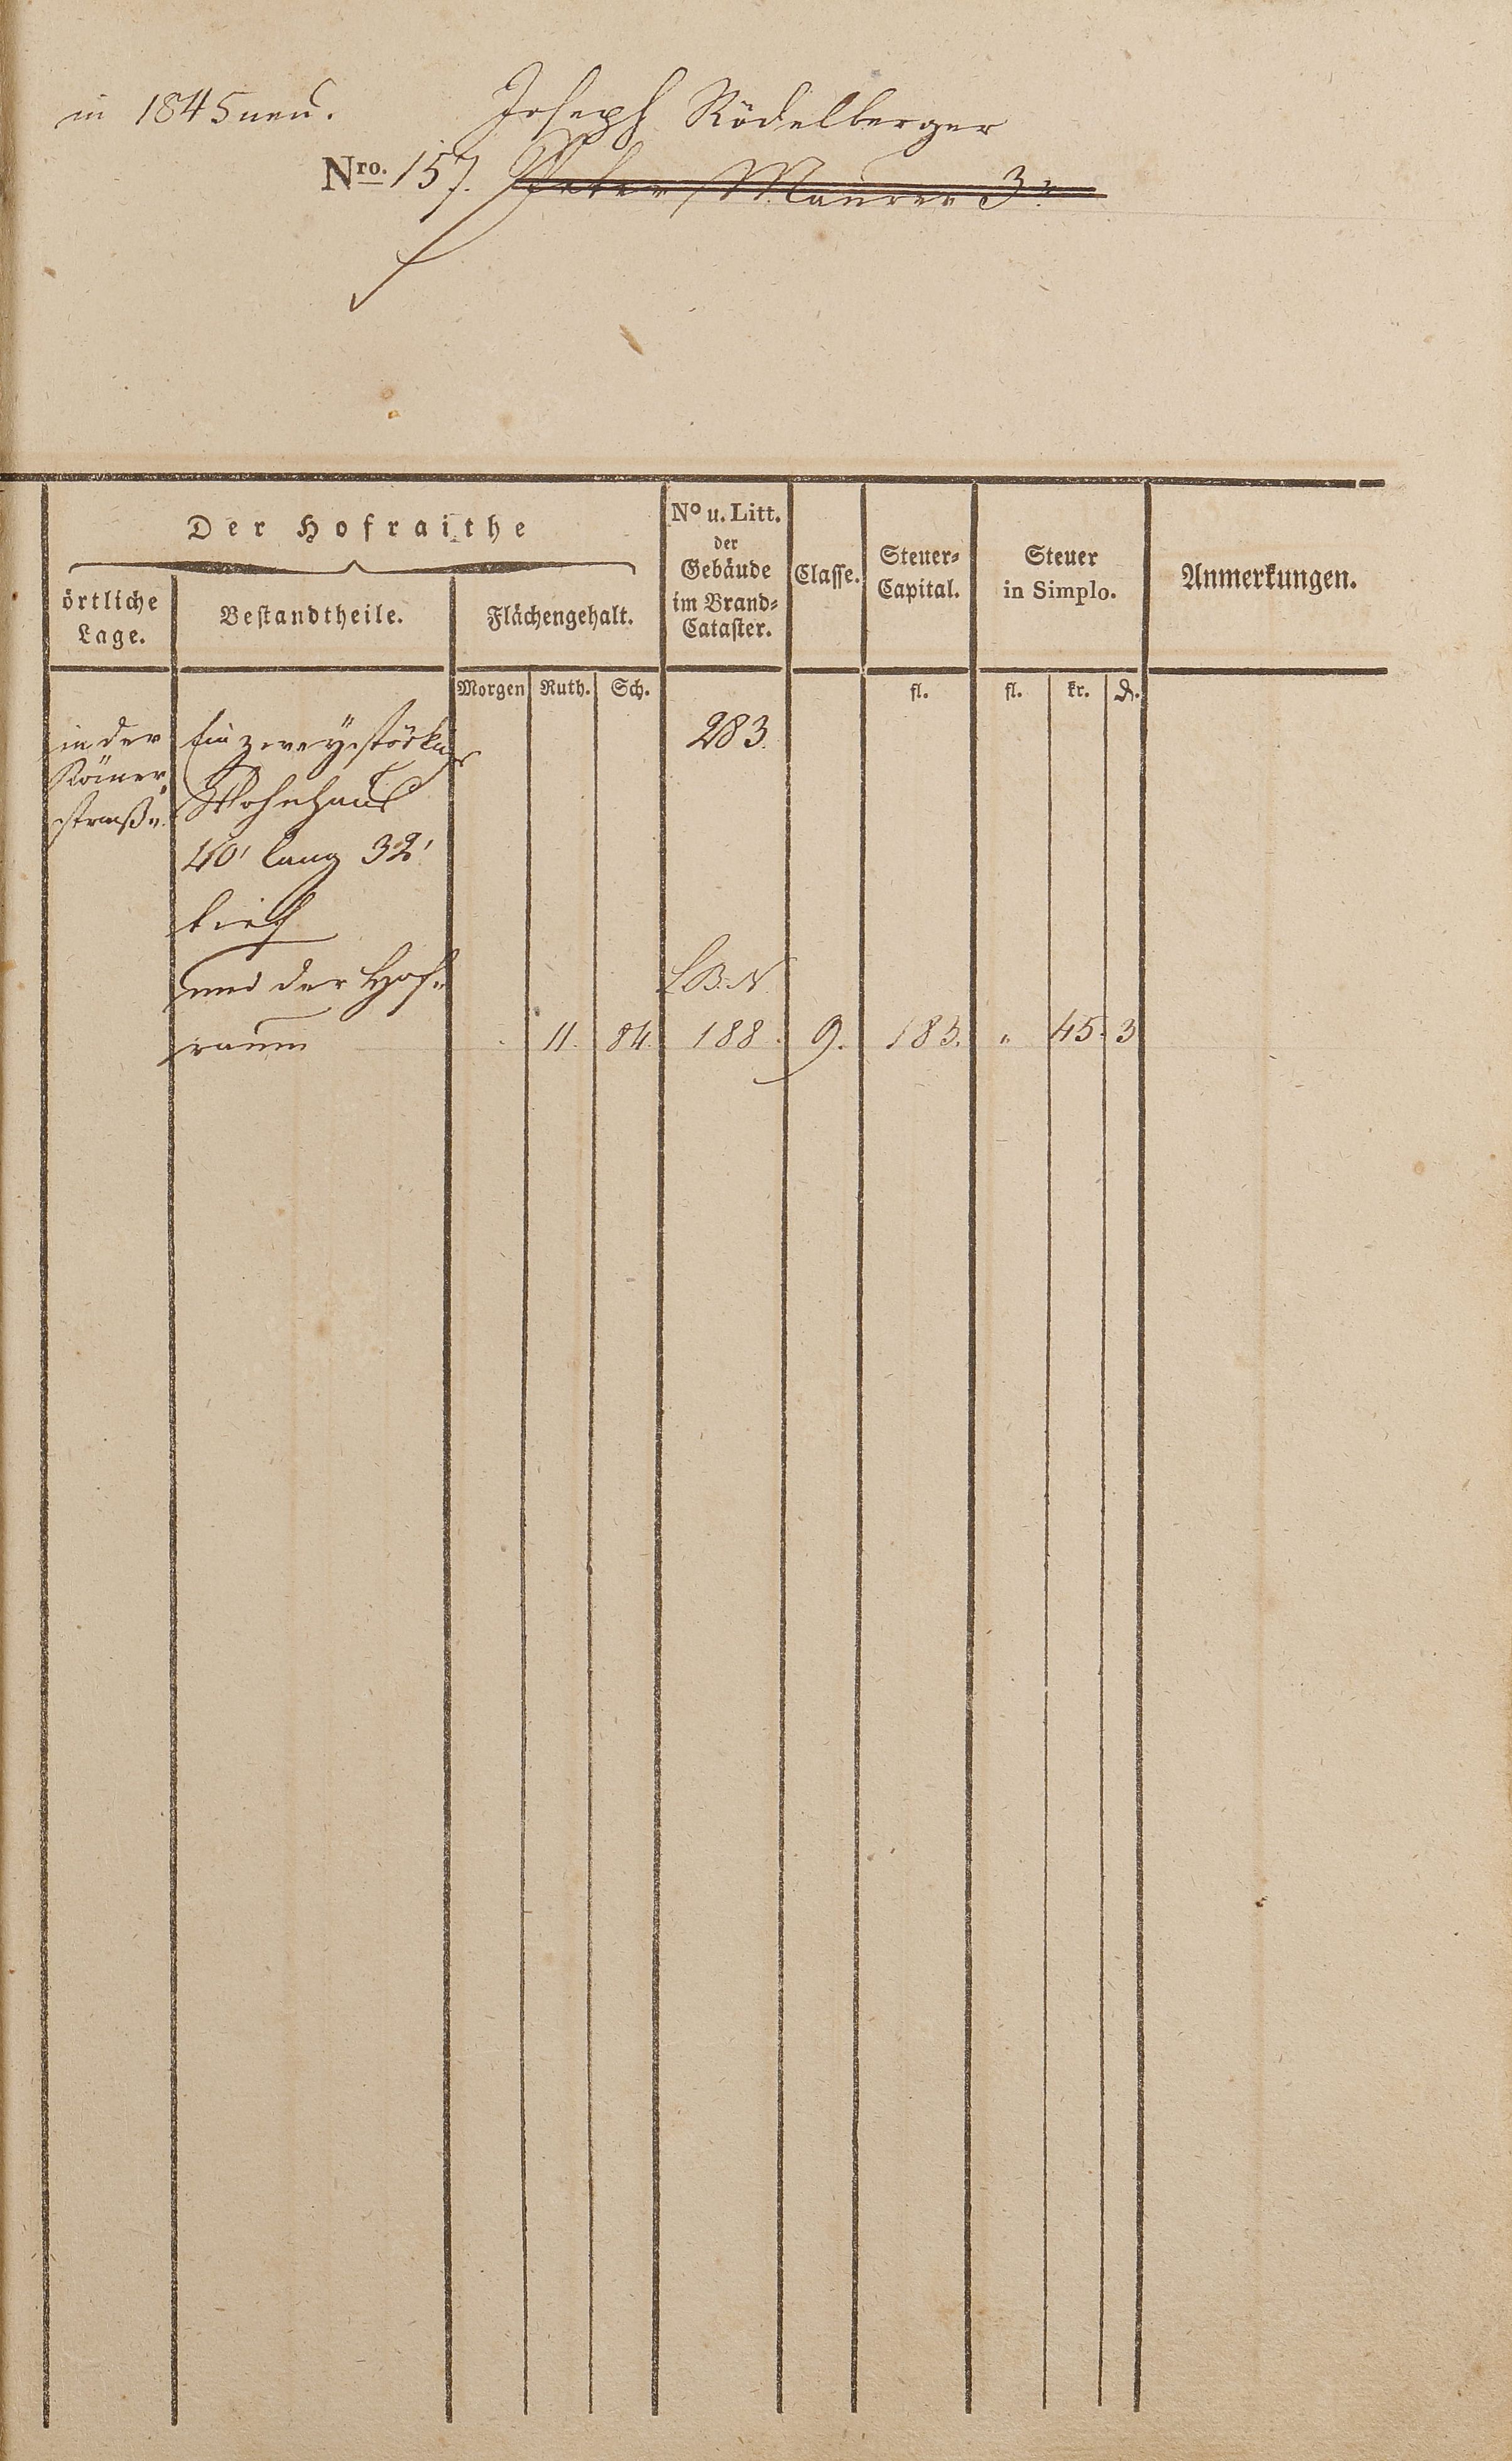 in 1845 neu.
Joseph Rödelberger
Nro. 157. Peter Maurer 3r
Der Hofraithe
örtliche
Lage.
Bestandtheile.
Flächengehalt.
No u. Litt.
der
Gebäude
im Brand-
Cataster.
Classe.
Steuer-
Capital.
Steuer
in Simplo.
Anmerkungen.
Morgen Ruth. Sch. fl. fl. kr. d.
in der Ein zweystöckig 283.
Römer
straße. Wohnhaus
40' lang 32'
tief
und der Hof- LB. N
raum 11. 84. 188. 9. 183. " 45. 3